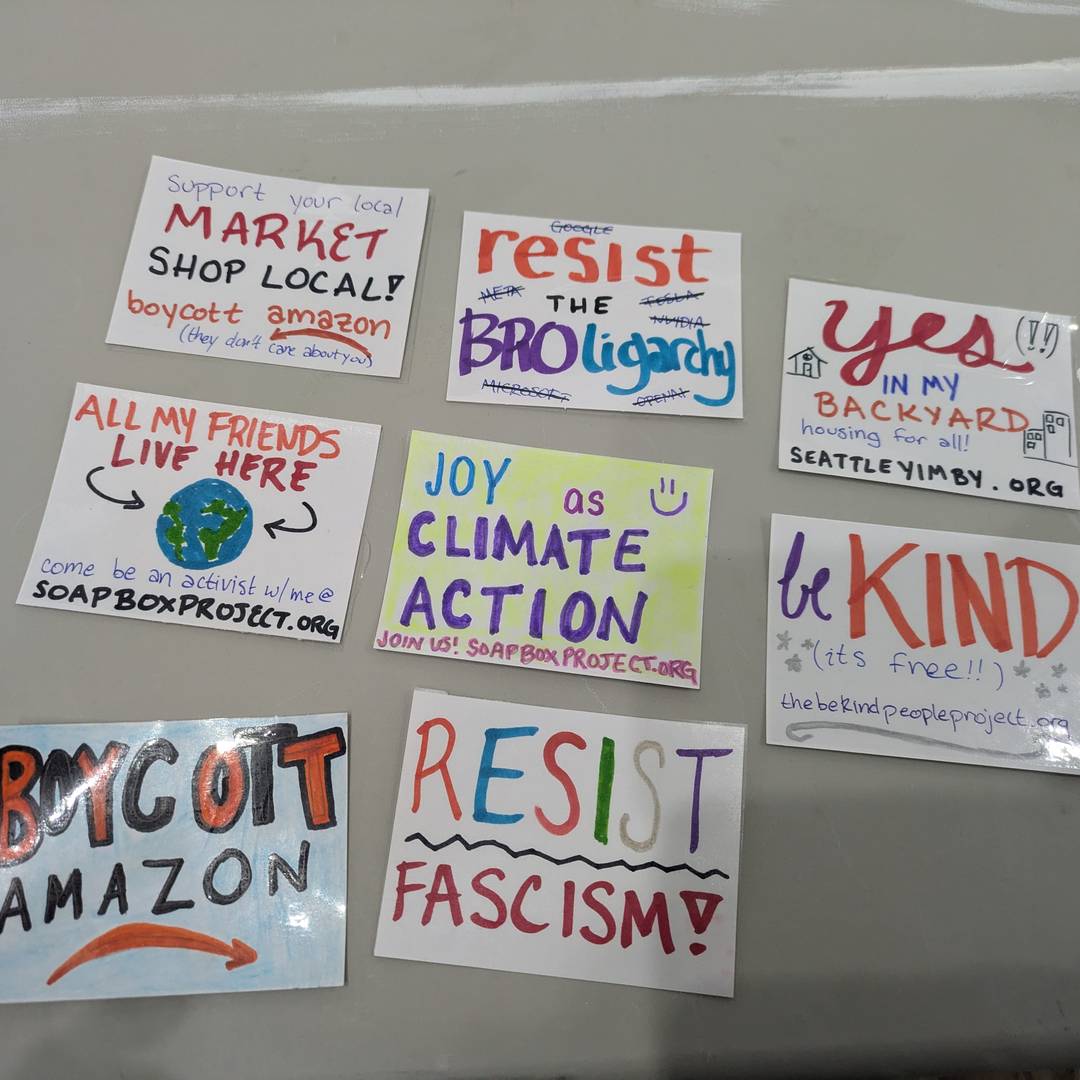 Support your local
MARKET
SHOP LOCAL!
boycott amazon
(they don't care about you)
GOOGLE
resist
META THE TESLA
NVIDIA
BROligarchy
MICROSOFT OPENAI
yes (!!)
IN MY
BACKYARD
housing for all!
SEATTLEYIMBY.ORG
ALL MY FRIENDS
LIVE HERE
come be an activist w/me @
SOAPBOXPROJECT.ORG
JOY as
CLIMATE
ACTION
JOIN US! SOAPBOXPROJECT.ORG
be KIND
(its free!!)
thebekindpeopleproject.org
BOYCOTT
AMAZON
RESIST
FASCISM!